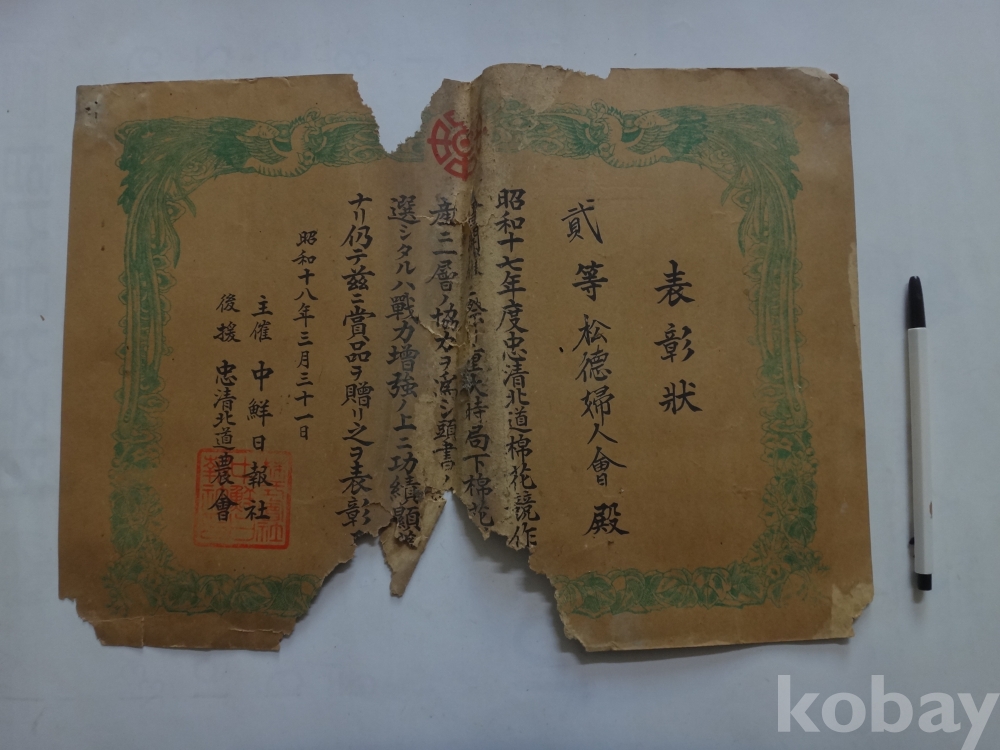 表彰狀
貳等 松德婦人會 殿
昭和十七年度忠清北道棉花競作
重大時局下棉花
産ニ層ノ協力ヲ 頭書ノ
選シタルハ戰力增强ノ上ニ功績顯
ナリ仍テ茲ニ賞品ヲ贈リ之ヲ表彰
昭和十八年三月三十一日
主催 中鮮日報社
後援 忠清北道農會
kobay